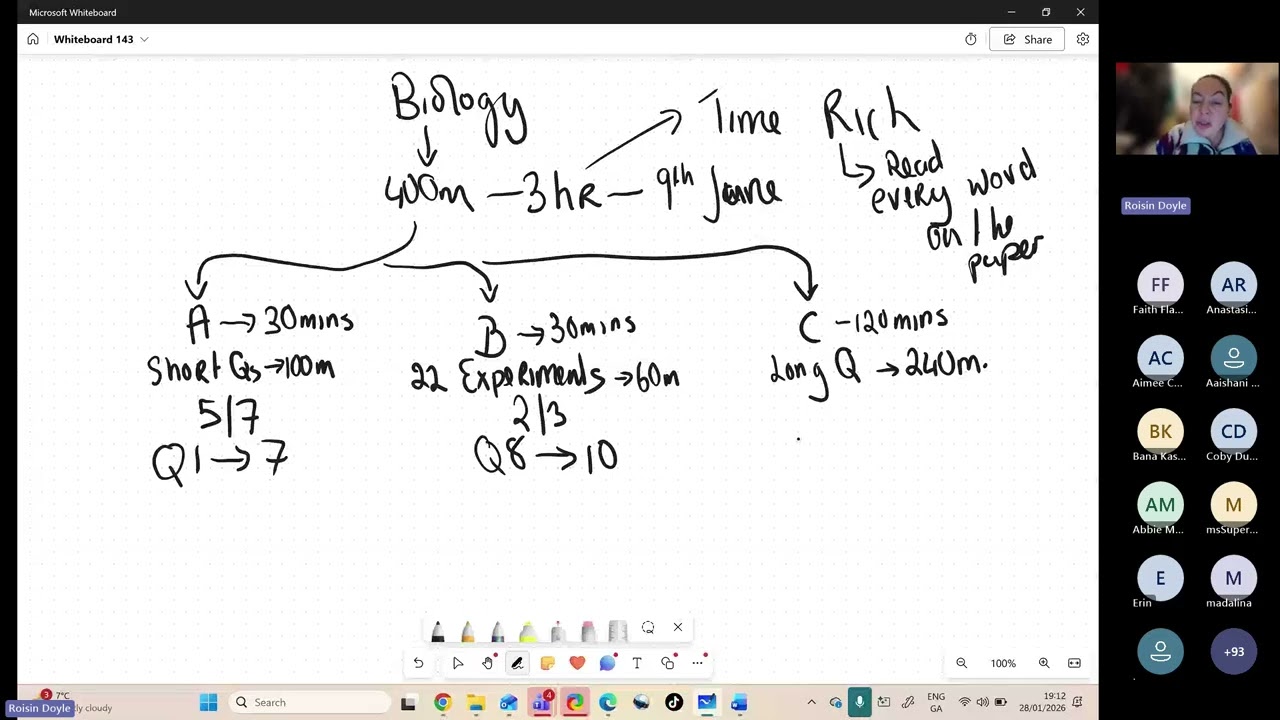 Microsoft Whiteboard
Whiteboard 143
Share
Biology
400m — 3hR — 9th June
Time Rich
Read
every word
on the
paper
A → 30mins
Short Qs → 100m
5/7
Q1 → 7
B → 30mins
22 Experiments → 60m
2/3
Q8 → 10
C - 120mins
Long Q → 240m.
Roisin Doyle
FF
Faith Fla...
AR
Anastasi...
AC
Aimee C...
Aaishani ...
BK
Bana Kas...
CD
Coby Du...
AM
Abbie M...
M
msSuper...
E
Erin
M
madalina
+93
T
100%
3
7°C
tly cloudy
Roisin Doyle
Search
4
ENG
GA
19:12
28/01/2026